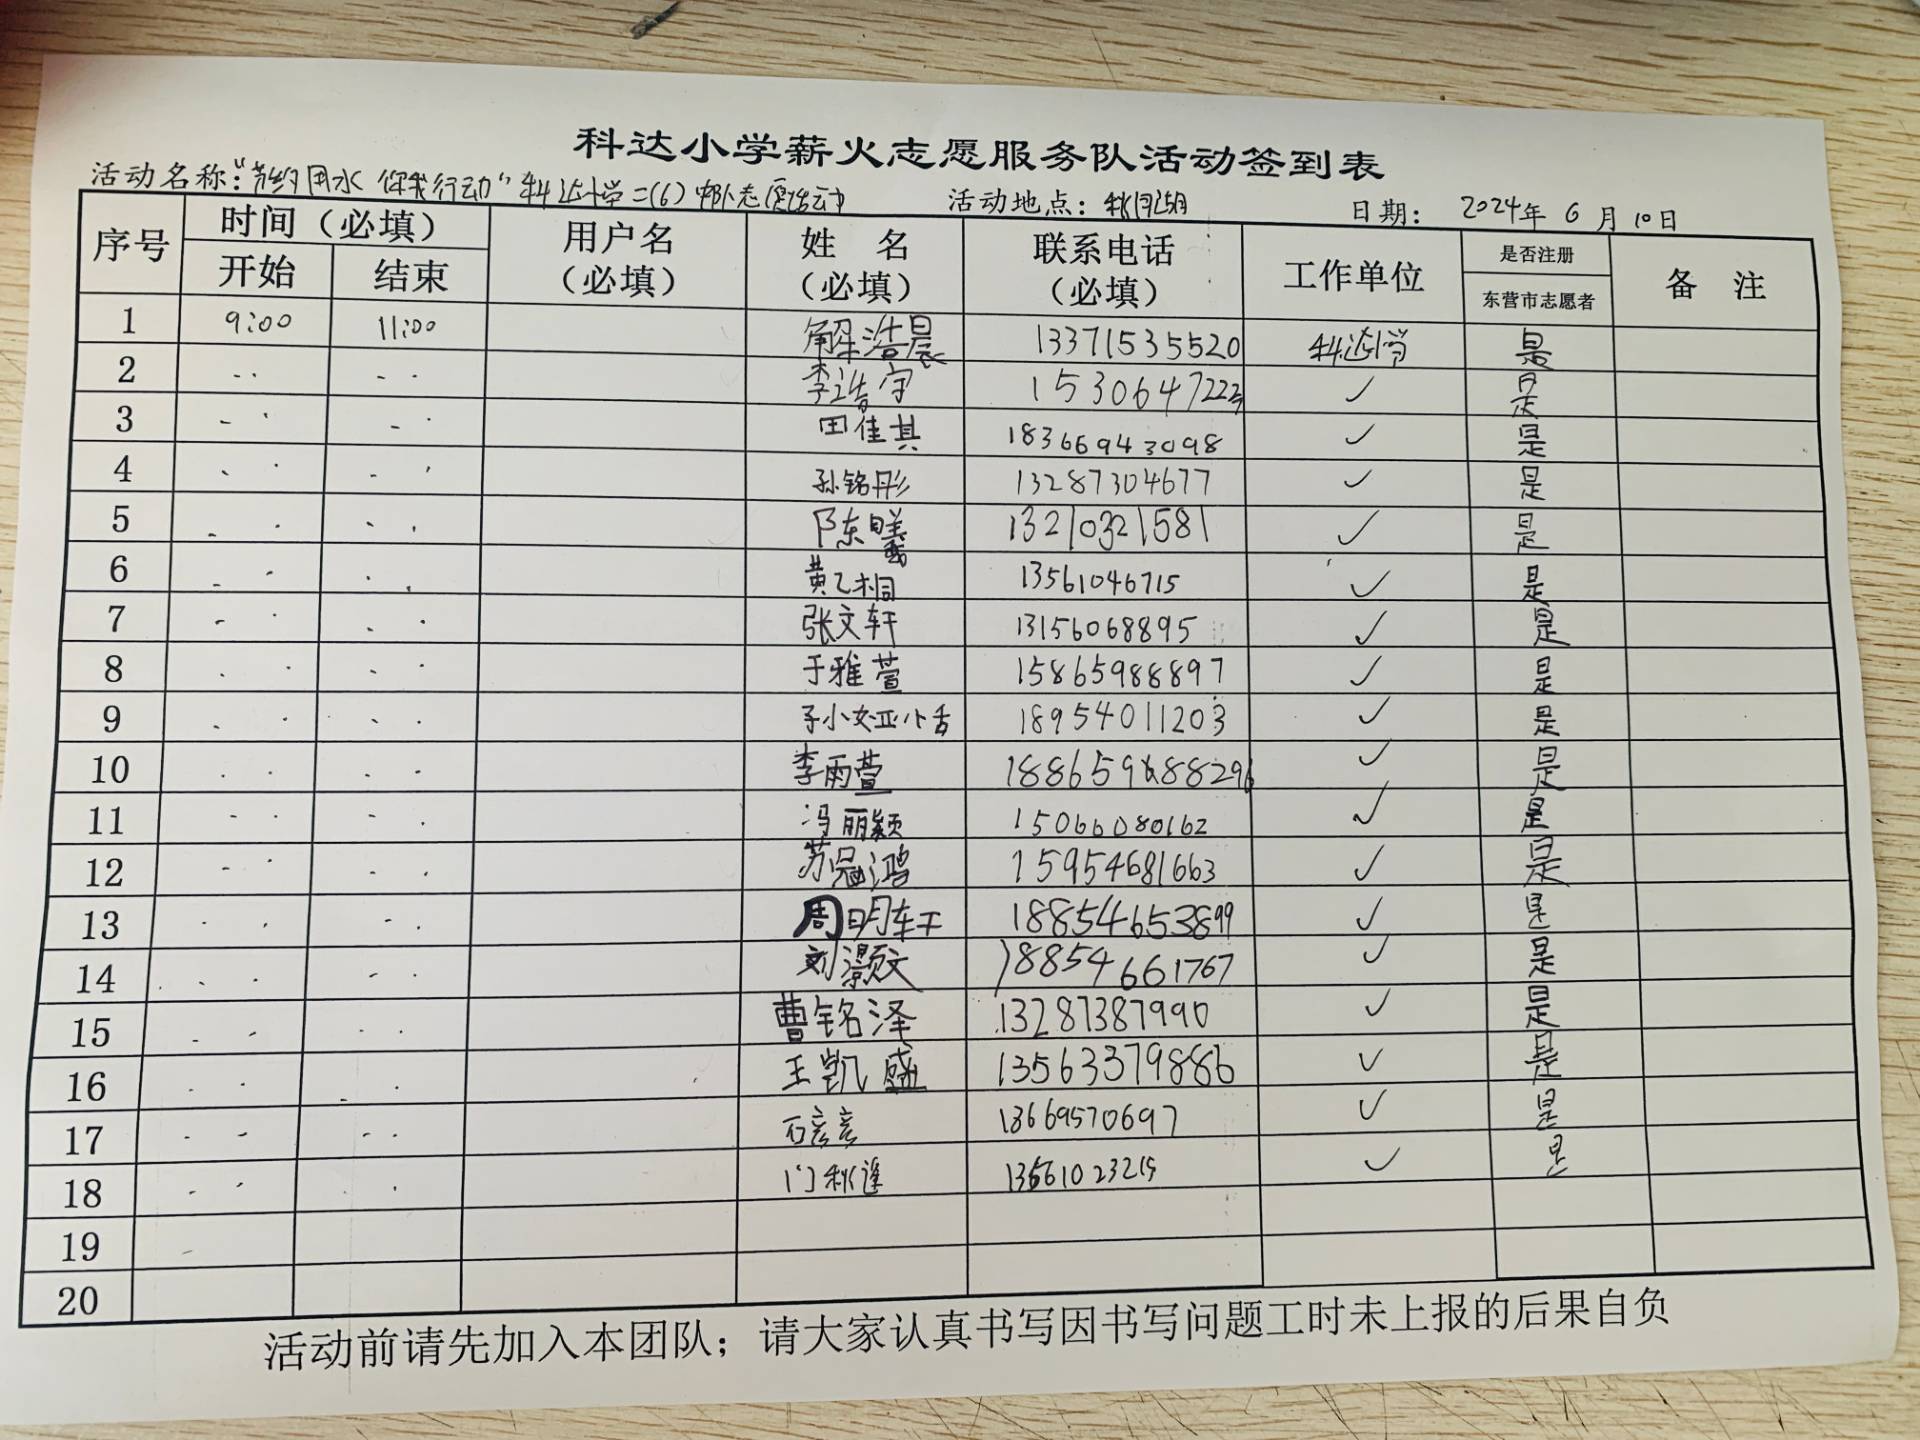 科达小学薪火志愿服务队活动签到表
活动名称:“节约用水 你我行动”科达小学二(6)中队志愿活动 活动地点: 秋月湖 日期: 2024年 6 月 10日
序号 时间(必填) 用户名(必填) 姓 名(必填) 联系电话(必填) 工作单位 是否注册东营市志愿者 备 注
开始 结束
1 9:00 11:00 解浩晨 13371535520 科达小学 是
2 李浩宇 15306472223 ✓ 是
3 田佳其 18366943098 ✓ 是
4 孙铭彤 13287304677 ✓ 是
5 陈东曦 13210321581 ✓ 是
6 黄乙桐 13561046715 ✓ 是
7 张文轩 13156068895 ✓ 是
8 于雅萱 15865988897 ✓ 是
9 18954011203 ✓ 是
10 李雨萱 ✓ 是
11 冯丽颖 15066080162 ✓ 是
12 苏 鸿 15954681663 ✓ 是
13 周明轩 18854653899 ✓ 是
14 刘灏文 18854661767 ✓ 是
15 曹铭泽 13287387990 ✓ 是
16 王凯盛 13563379886 ✓ 是
17 石彦彦 13669570697 ✓ 是
18 门秋逢 13561023215 ✓ 是
19
20
活动前请先加入本团队；请大家认真书写因书写问题工时未上报的后果自负